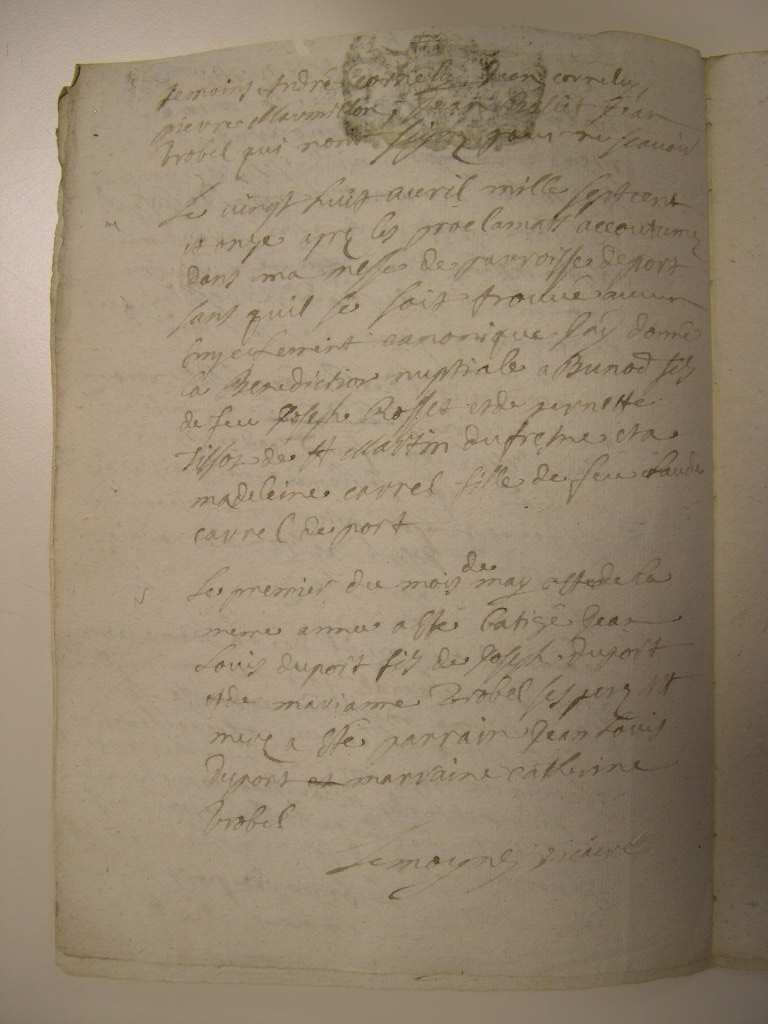 temoins André cornelly Jean cornely
pierre Marmillon, Jean Jean
Trobel qui nont signe pour ne scavoir
Le vingt huit auril mille sept cent
et onze apre les proclamats accoutumé
dans ma messe de parroisse de port
sans quil se soit trouué aucun
canonique Jay donné
la Benediction nuptiale a Bunod fis
de feu Joseph Rosset et de pernette
Tissot de st Martin du fresne et a
madeleine carrel fille de feu claude
carrel de port
Le premier du mois de may de la
meme annee a esté batisé Jean
Louis duport fis de Joseph duport
et de marianne Trobel ses pere et
mere a esté parrain Jean Louis
duport et marraine catherine
Trobel
Lemoyne vicaire